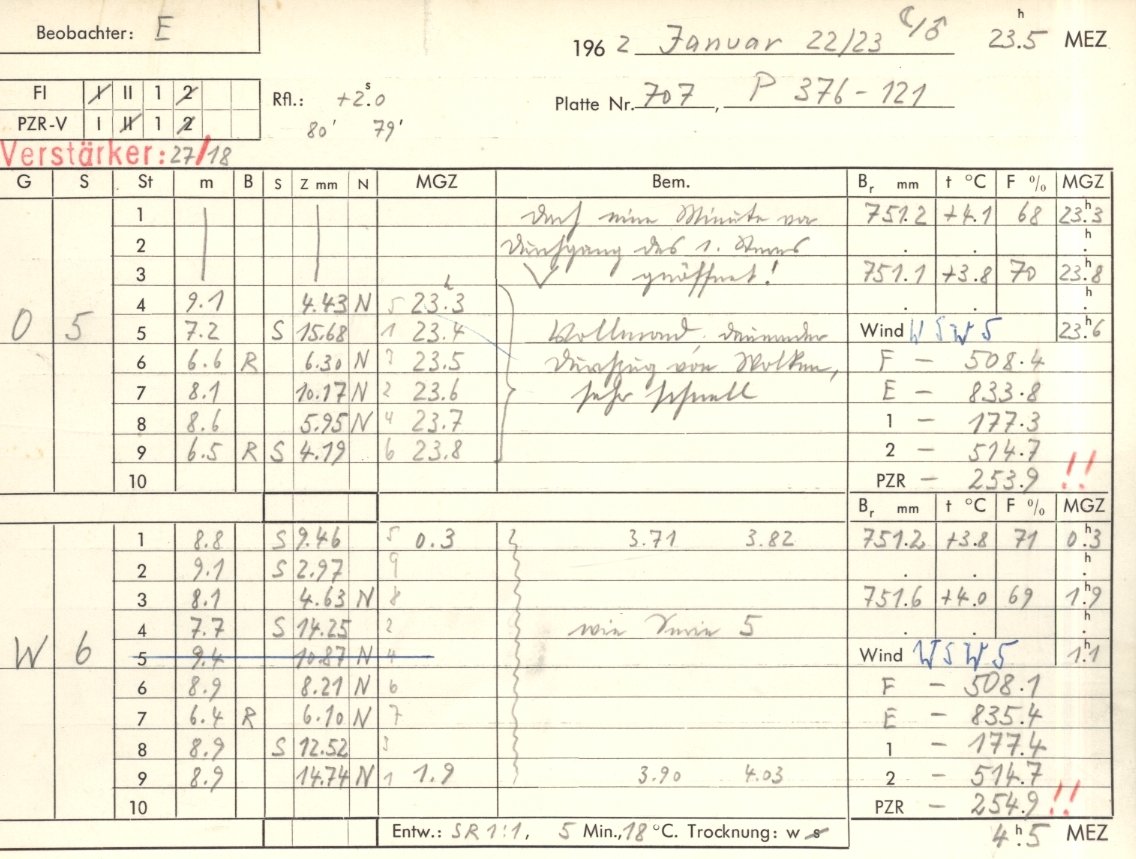 Beobachter: E
1962 Januar 22/23 ☾/♂ 23.5 h MEZ
FI I II 1 2
Rfl.: +2.0 s
Platte Nr. 707, P 376-121
PZR-V I II 1 2
80' 79'
Verstärker: 27/18
G S St m B S Z mm N MGZ Bem. Br mm t °C F % MGZ
1 Dach eine Minute vor 751.2 +4.1 68 23.3 h
2 Durchgang des 1. Sternes
3 geöffnet! 751.1 +3.8 70 23.8 h
4 9.1 4.43 N 5 23.3 h
O 5 5 7.2 S 15.68 1 23.4 Vollmond, dauernder Wind WSW 5 23.6 h
6 6.6 R 6.30 N 3 23.5 Durchzug von Wolken, F – 508.4
7 8.1 10.17 N 2 23.6 sehr schnell E – 833.8
8 8.6 5.95 N 4 23.7 1 – 177.3
9 6.5 R S 4.19 6 23.8 2 – 514.7
10 PZR – 253.9 !!
Br mm t °C F % MGZ
1 8.8 S 9.46 5 0.3 3.71 3.82 751.2 +3.8 71 0.3 h
2 9.1 S 2.97 9
3 8.1 4.63 N 8 751.6 +4.0 69 1.9 h
4 7.7 S 14.25 2 wie Serie 5
W 6 5 9.4 10.87 N 4 Wind WSW 5 1.1 h
6 8.9 8.21 N 6 F – 508.1
7 6.4 R 6.10 N 7 E – 835.4
8 8.9 S 12.52 3 1 – 177.4
9 8.9 14.74 N 1 1.9 3.90 4.03 2 – 514.7
10 PZR – 254.9 !!
Entw.: SR 1:1, 5 Min., 18 °C. Trocknung: w s 4.5 h MEZ